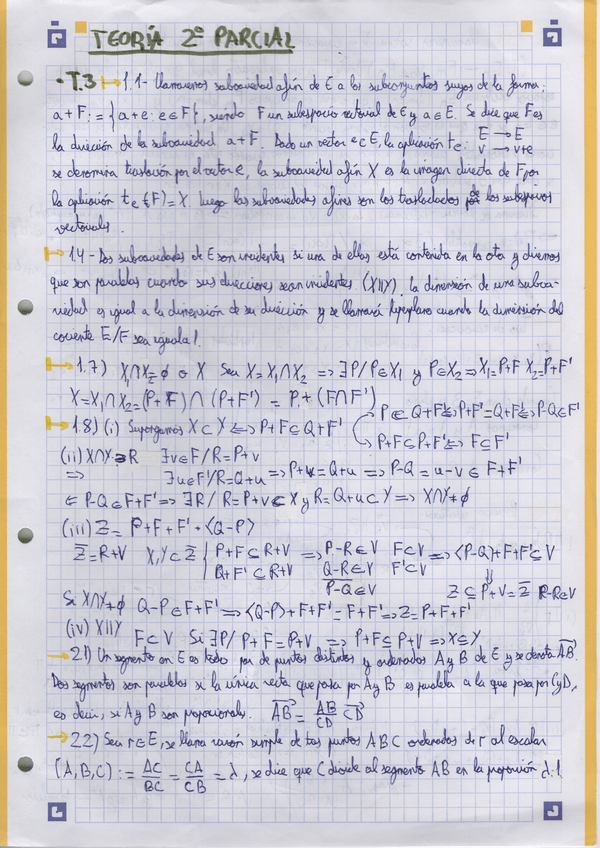 TEORÍA 2º PARCIAL
• T.3 ↦ 1.1- Llamaremos subvariedad afín de E a los subconjuntos suyos de la forma:
a+F := {a+e: e∈F}, siendo F un subespacio vectorial de E y a∈E. Se dice que F es
la dirección de la subvariedad a+F. Dado un vector e∈E, la aplicación te: E → E
v → v+e
se denomina traslación por el vector e, la subvariedad afín X es la imagen directa de F por
la aplicación te (F)=X. Luego las subvariedades afines son los trasladados de los subespacios
vectoriales.
↦ 1.4- Dos subvariedades de E son incidentes si una de ellas está contenida en la otra y diremos
que son paralelas cuando sus direcciones sean incidentes (X||Y). La dimensión de una subva-
riedad es igual a la dimensión de su dirección y se llamará hiperplano cuando la dimensión del
cociente E/F sea igual a 1.
↦ 1.7) X₁∩X₂=∅ o X Sea X=X₁∩X₂ => ∃P/P∈X₁ y P∈X₂ => X₁=P+F X₂=P+F'
X=X₁∩X₂=(P+F)∩(P+F') = P+(F∩F')
↦ 1.8) (i) Supongamos X⊂Y <=> P+F⊆Q+F'
P∈Q+F' <=> P+F'=Q+F' <=> P-Q∈F'
P+F⊆P+F' <=> F⊆F'
(ii) X∩Y∋R ∃v∈F/R=P+v
=> ∃u∈F'/R=Q+u => P+v=Q+u => P-Q=u-v∈F+F'
⇐ P-Q∈F+F' => ∃R/ R=P+v⊂X y R=Q+u⊂Y => X∩Y≠∅
(iii) Z= P+F+F'+<Q-P>
Z̄=R+V X,Y⊂Z̄ { P+F⊆R+V => P-R∈V F⊂V => <P-Q>+F+F'⊆V
Q+F'⊂R+V Q-R∈V F'⊂V ⇓
P-Q∈V Z⊆P+V=Z̄ P-R∈V
Si X∩Y≠∅ Q-P∈F+F' => <Q-P>+F+F'=F+F' => Z=P+F+F'
(iv) X||Y F⊂V Si ∃P/ P+F=P+V => P+F⊆P+V => X⊆Y
→ 2.1) Un segmento en E es todo par de puntos distintos y ordenados A y B de E y se denota AB.
Dos segmentos son paralelos si la única recta que pasa por A y B es paralela a la que pasa por C y D,
es decir, si A y B son proporcionales. AB = AB/CD CD
→ 2.2) Sea r∈E, se llama razón simple de tres puntos ABC ordenados de r al escalar
(A,B,C) := AC/BC = CA/CB = λ, se dice que C divide al segmento AB en la proporción λ:1